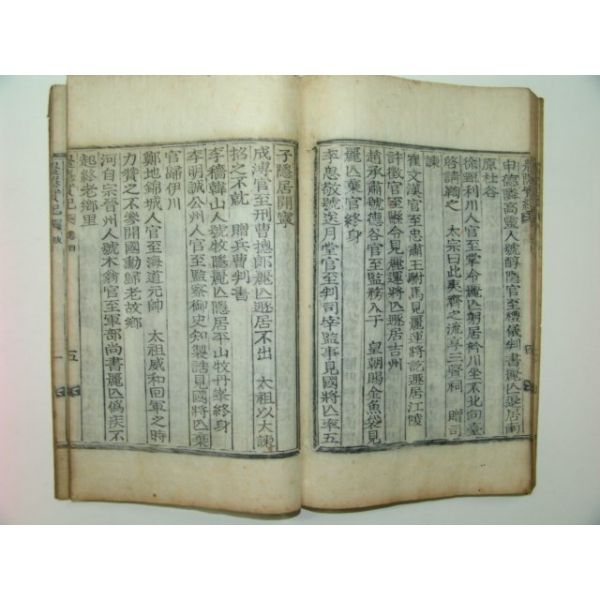 申德隣高靈人號醇隱官至禮儀判書麗亡退居
原杜谷
徐甄利川人官至掌令麗亡朝居衿川坐不北向臺
啓請鞫之 太宗曰此夷齊之流享三賢祠 贈司
諫
崔文漢官至忠肅王駙馬見麗運將訖遯居江陵
許徵官至縣令見麗運將亡遯居吉州
趙承肅號德谷官至監務入于 皇朝賜金魚袋見
麗亡棄官終身
李思敬號送月堂官至判司宰監事見國將亡率五
子隱居開寧
成溥官至刑曹摠郎麗亡遯居不出 太祖以大諫
招之不就 贈兵曹判書
李穡韓山人號牧隱麗亡隱居平山牧丹峯終身
李明誠公州人官至監察御史知製誥見國將亡棄
官歸伊川
鄭地錦城人官至海道元帥 太祖威和回軍之時
力贊之不參開國勳歸老故鄉
河自宗晉州人號木翁官至軍部尚書麗亡僞疾不
起終老鄉里
卷四
五